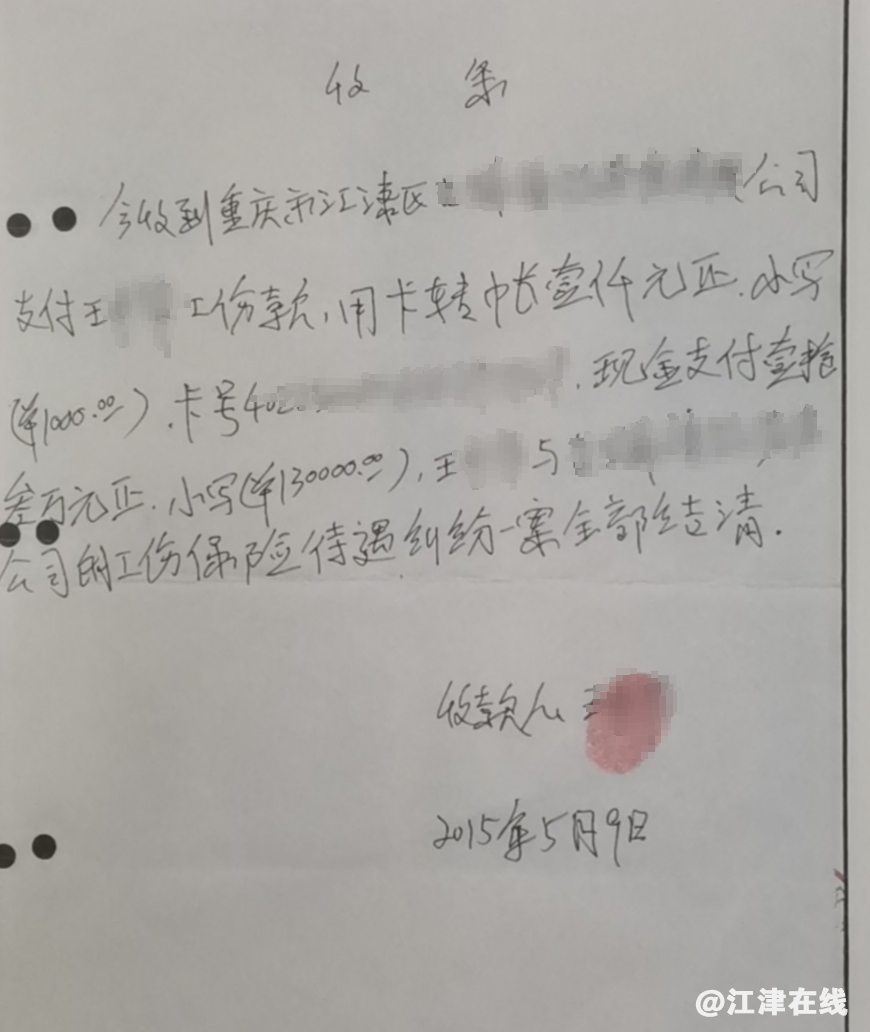 收 条
今收到重庆市江津区 公司
支付王 工伤款,用卡转帐壹仟元正.小写
(¥1000.00).卡号402 .现金支付壹拾
叁万元正.小写(¥130000.00),王 与
公司的工伤保险待遇纠纷一案全部结清.
收款人 王
2015年5月9日
@江津在线